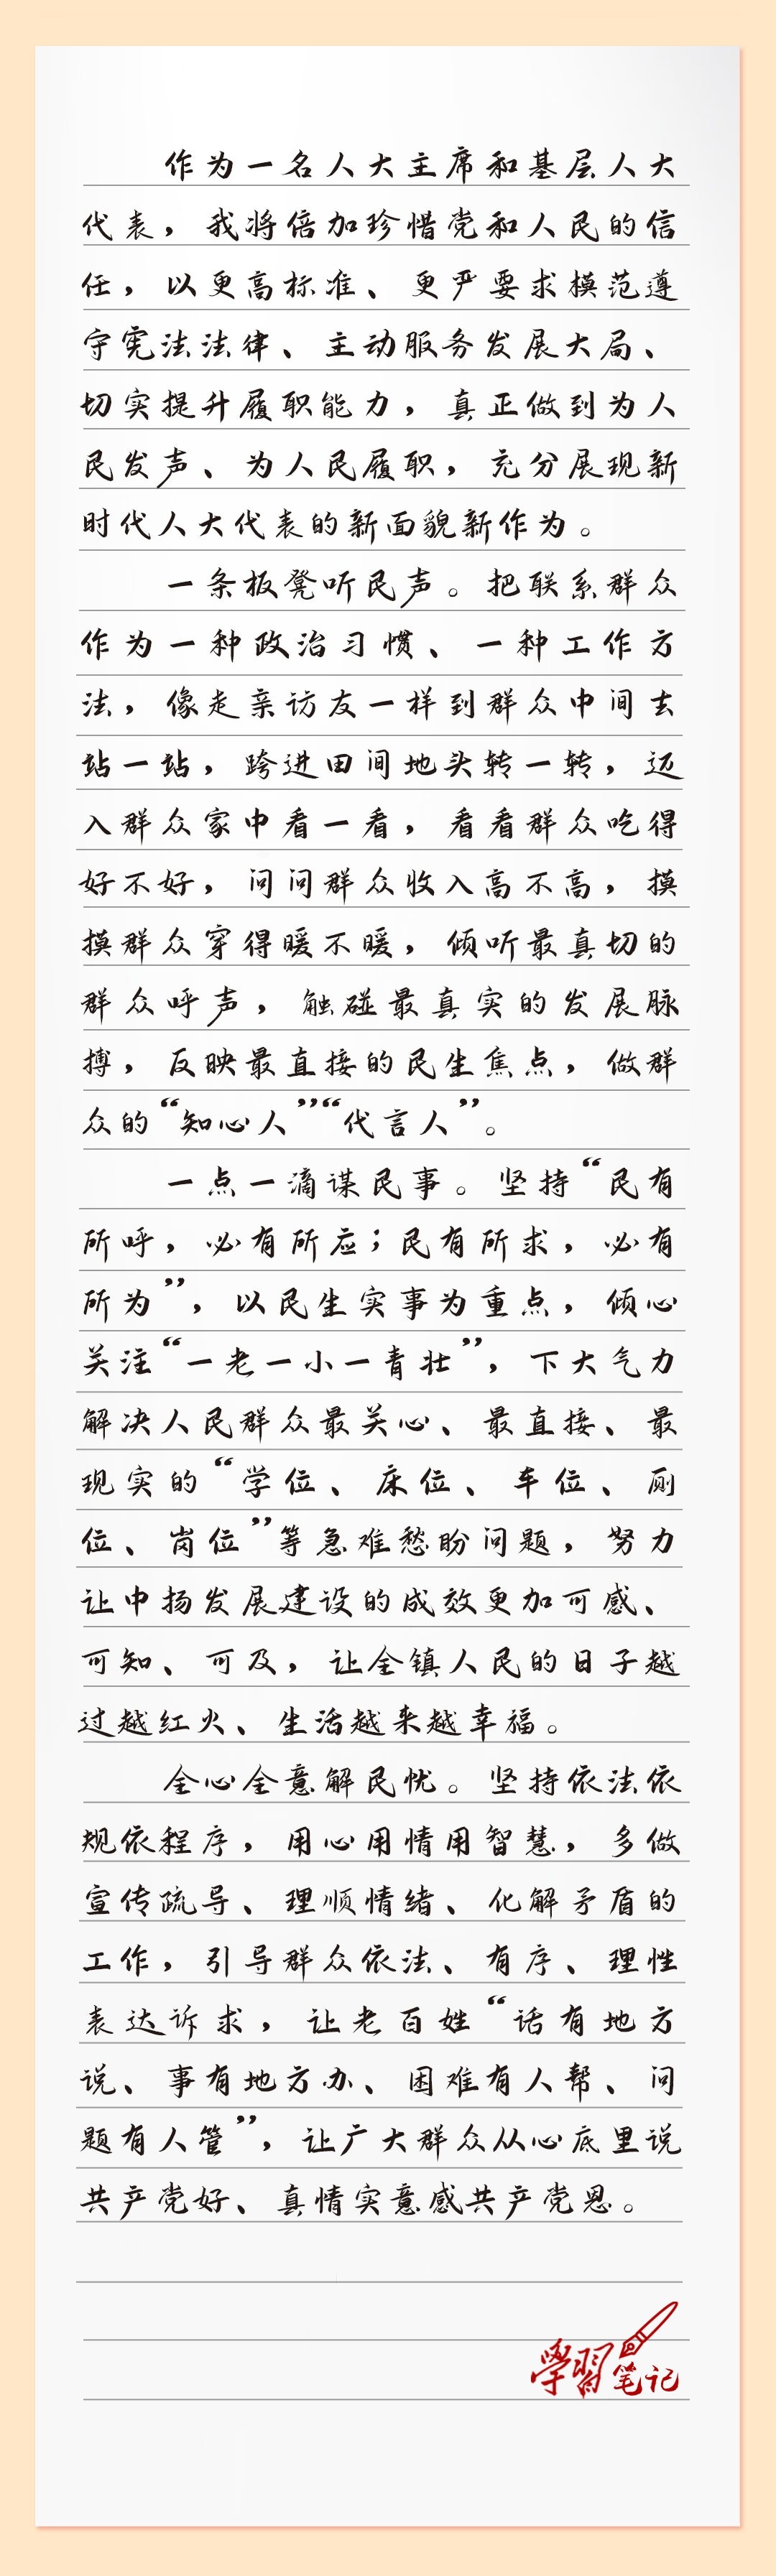 作为一名人大主席和基层人大
代表，我将倍加珍惜党和人民的信
任，以更高标准、更严要求模范遵
守宪法法律、主动服务发展大局、
切实提升履职能力，真正做到为人
民发声、为人民履职，充分展现新
时代人大代表的新面貌新作为。
一条板凳听民声。把联系群众
作为一种政治习惯、一种工作方
法，像走亲访友一样到群众中间去
站一站，跨进田间地头转一转，迈
入群众家中看一看，看看群众吃得
好不好，问问群众收入高不高，摸
摸群众穿得暖不暖，倾听最真切的
群众呼声，触碰最真实的发展脉
搏，反映最直接的民生焦点，做群
众的“知心人”“代言人”。
一点一滴谋民事。坚持“民有
所呼，必有所应；民有所求，必有
所为”，以民生实事为重点，倾心
关注“一老一小一青壮”，下大气力
解决人民群众最关心、最直接、最
现实的“学位、床位、车位、厕
位、岗位”等急难愁盼问题，努力
让中扬发展建设的成效更加可感、
可知、可及，让全镇人民的日子越
过越红火、生活越来越幸福。
全心全意解民忧。坚持依法依
规依程序，用心用情用智慧，多做
宣传疏导、理顺情绪、化解矛盾的
工作，引导群众依法、有序、理性
表达诉求，让老百姓“话有地方
说、事有地方办、困难有人帮、问
题有人管”，让广大群众从心底里说
共产党好、真情实意感共产党恩。
學習笔记